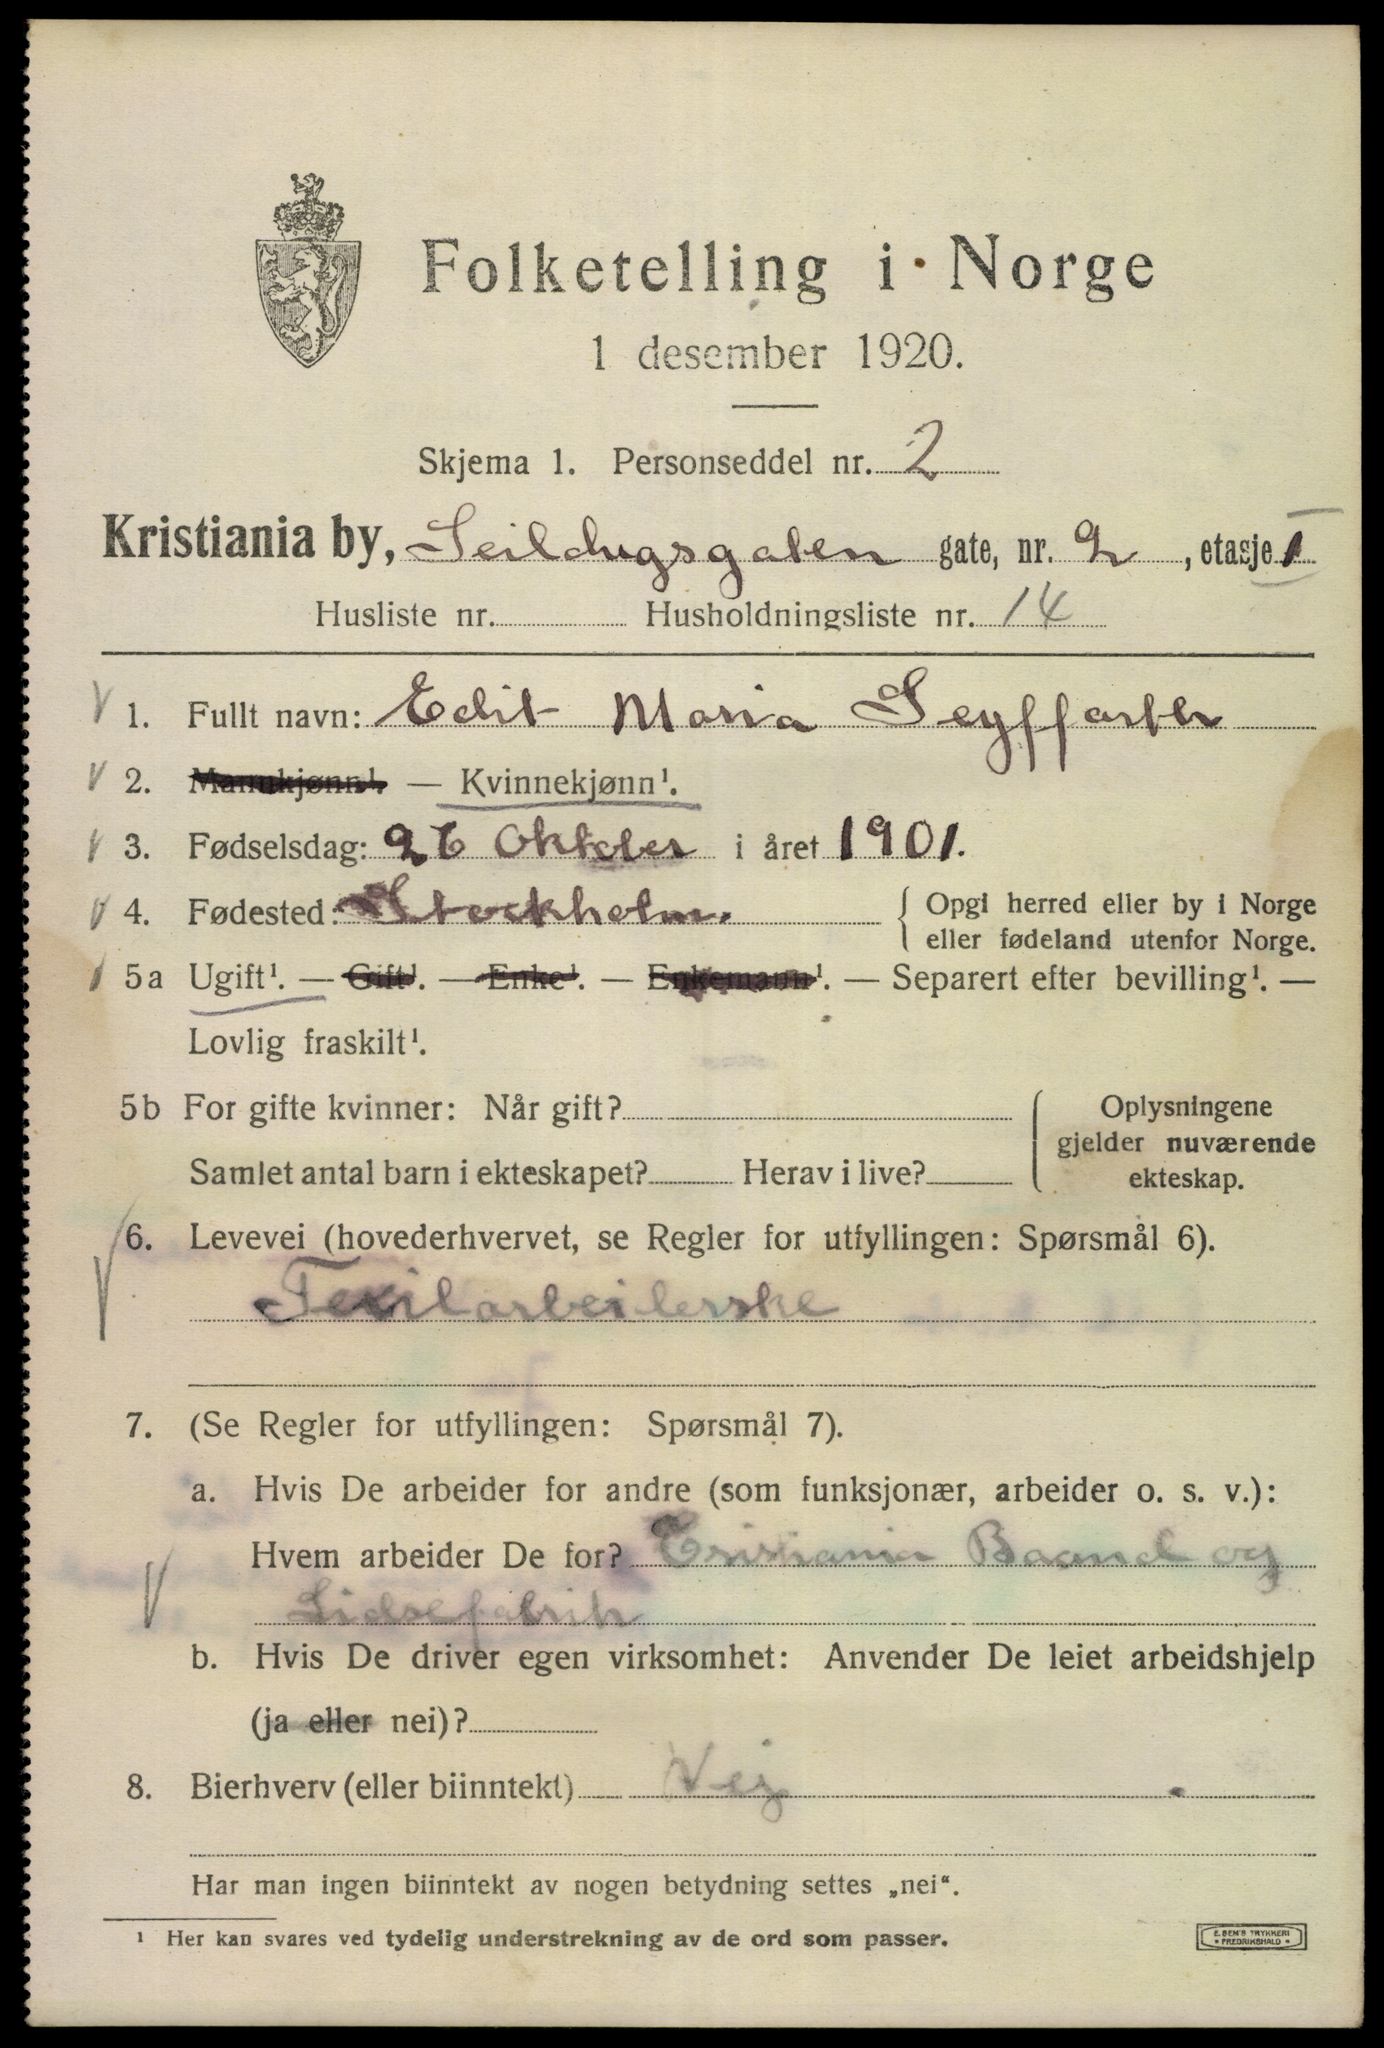 Folketelling i Norge
1 desember 1920.
Skjema 1. Personseddel nr. 2
Kristiania by, Seildugsgaten gate, nr. 2, etasje I
Husliste nr. Husholdningsliste nr. 14
1. Fullt navn: Edit Maria Seyffarth
2. Mannkjønn¹. — Kvinnekjønn¹.
3. Fødselsdag: 26 Oktober i året 1901.
4. Fødested: Stockholm. { Opgi herred eller by i Norge
eller fødeland utenfor Norge.
5a Ugift¹. — Gift¹. — Enke¹. — Enkemann¹. — Separert efter bevilling¹. —
Lovlig fraskilt¹.
5b For gifte kvinner: Når gift? { Oplysningene
gjelder nuværende
Samlet antal barn i ekteskapet? Herav i live? ekteskap.
6. Levevei (hovederhvervet, se Regler for utfyllingen: Spørsmål 6).
Texilarbeilerske
7. (Se Regler for utfyllingen: Spørsmål 7).
a. Hvis De arbeider for andre (som funksjonær, arbeider o. s. v.):
Hvem arbeider De for? Cristiania Baand og
Lidsefabrik
b. Hvis De driver egen virksomhet: Anvender De leiet arbeidshjelp
(ja eller nei)?
8. Bierhverv (eller biinntekt) Nej
Har man ingen biinntekt av nogen betydning settes „nei“.
¹ Her kan svares ved tydelig understrekning av de ord som passer.
E. SEM'S TRYKKERI
• FREDRIKSHALD •